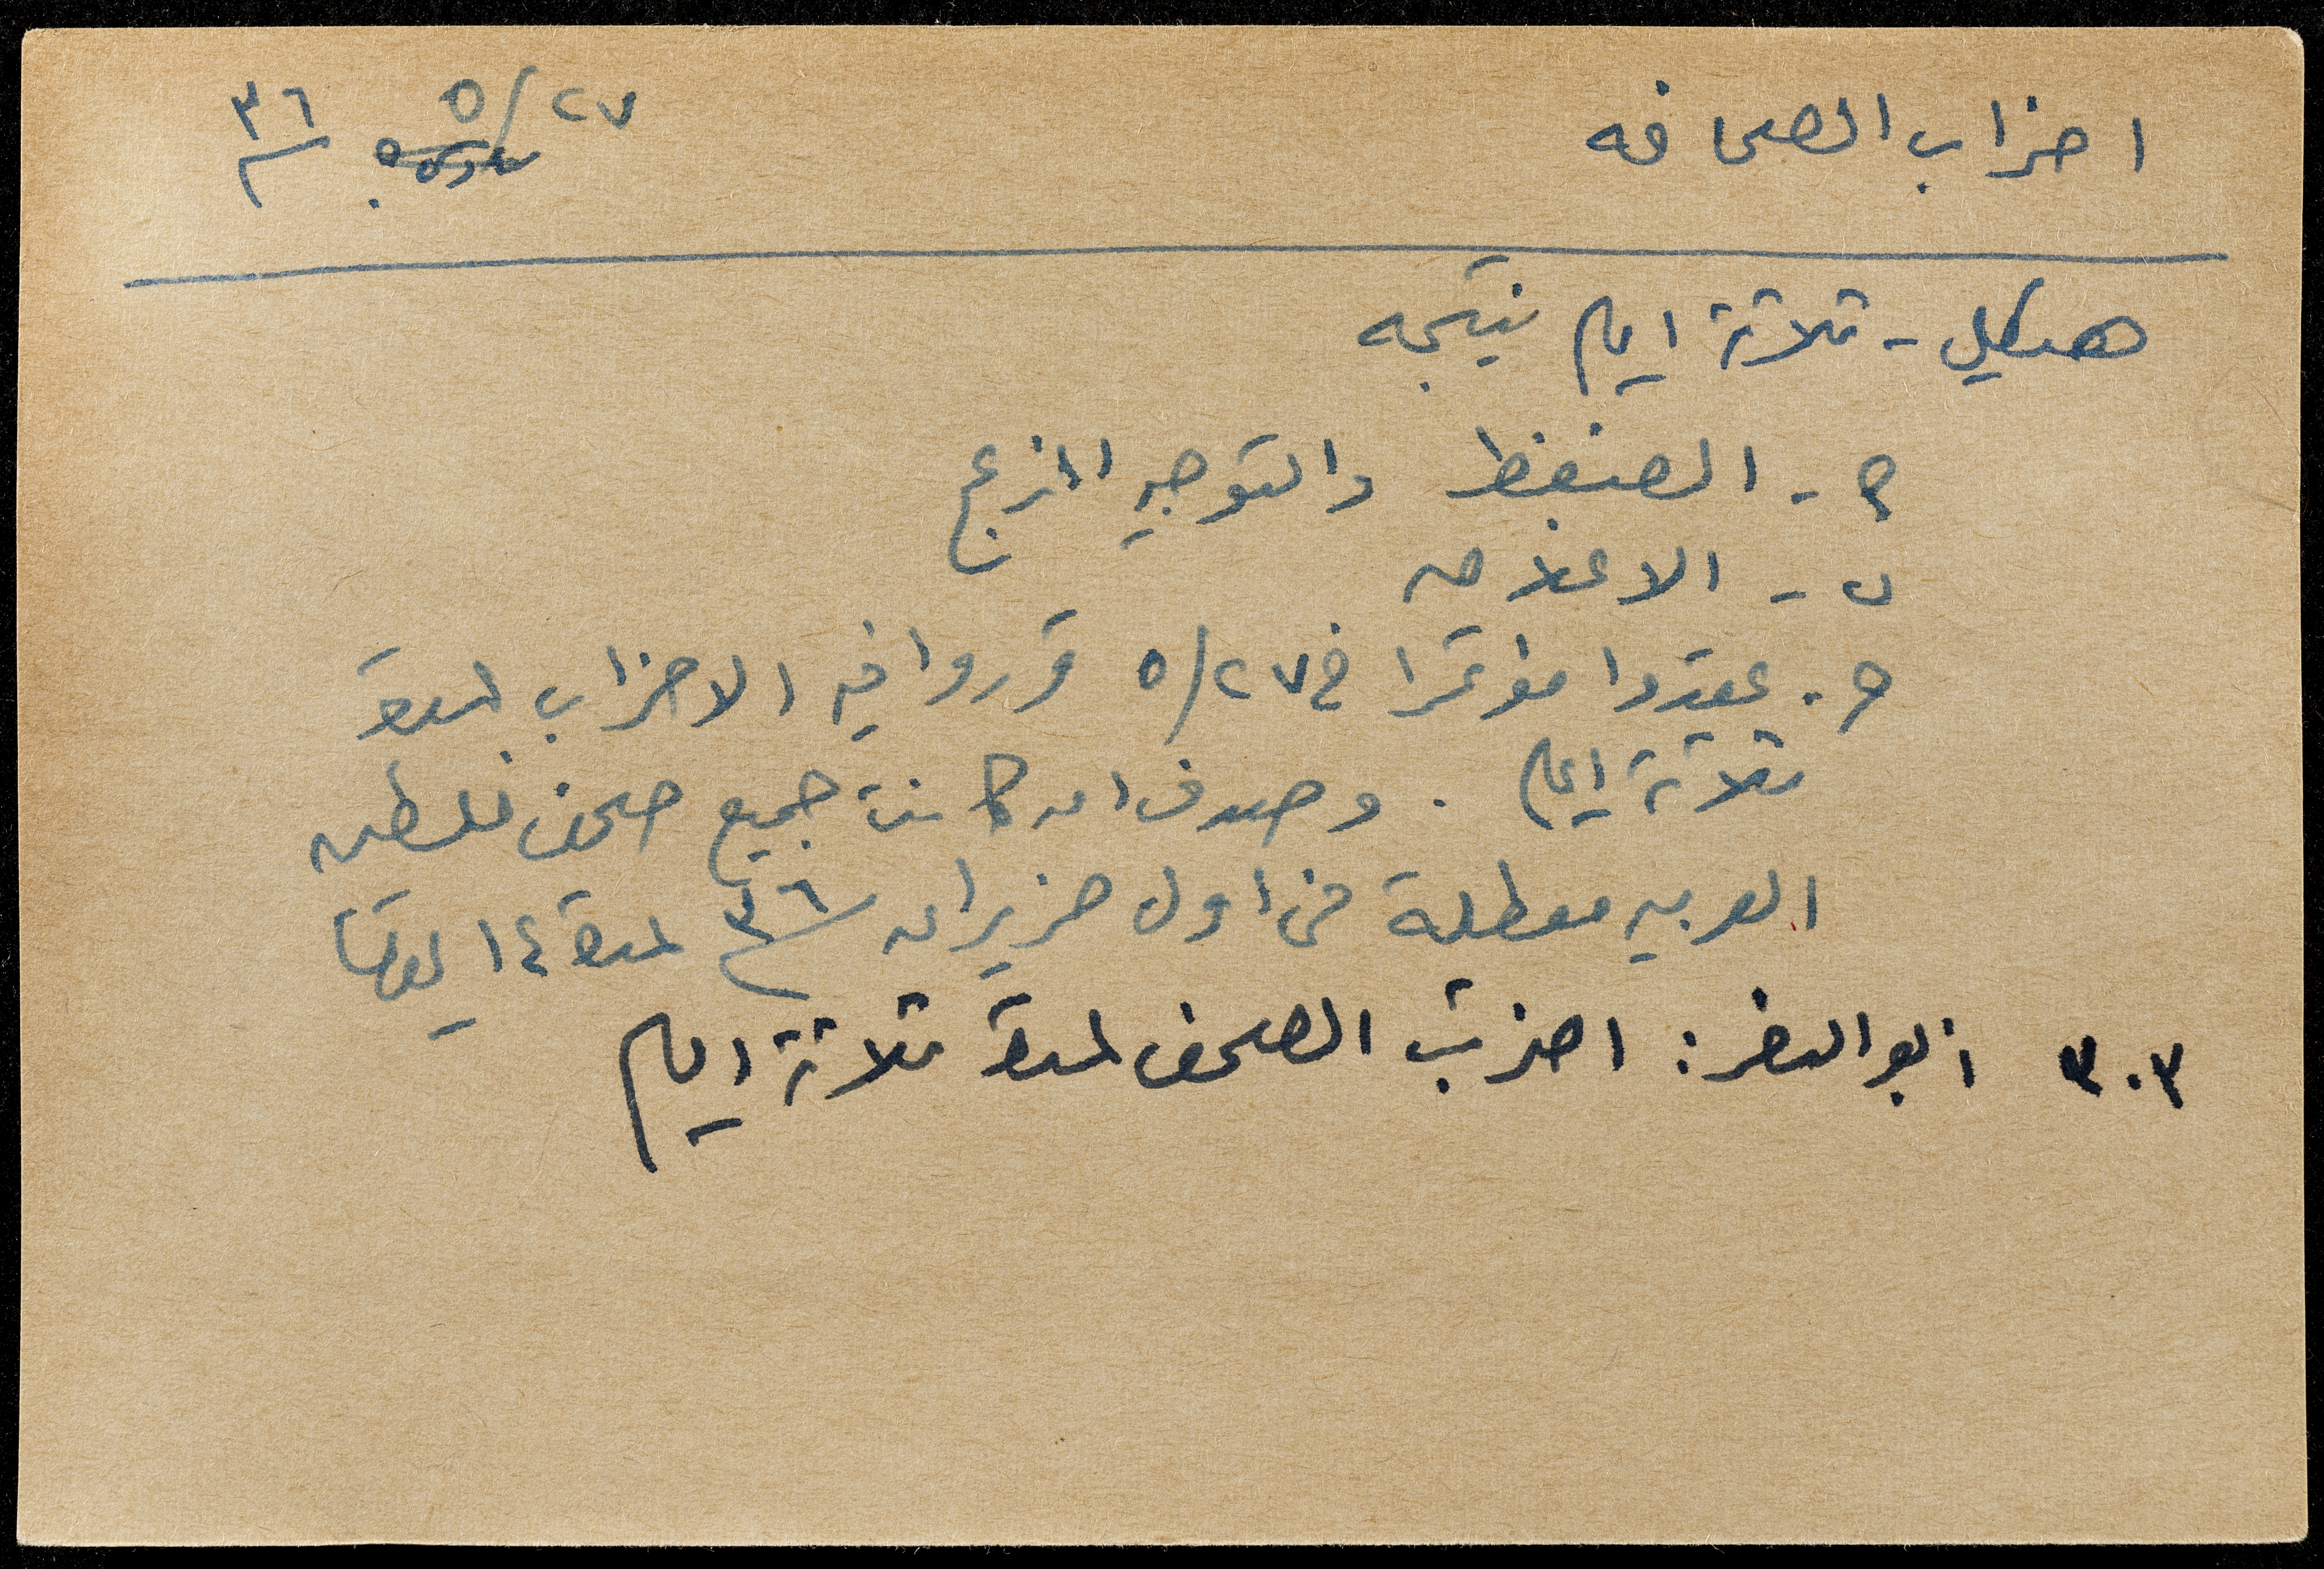 اضراب الصحافه ٢٧/٥ ٣٦
هيكل - ثلاثة ايام نتيجه
أ - الضغط والتوجيه المزعج
ب - الاعلامه
ج - عقدوا مؤتمرا في ٢٧/٥ قرروا فيه الاضراب لمدة
ثلاثة ايام . وصدف ان كانت جميع صحف فلسطين
العربيه معطلة من اول حزيران ٣٦ لمدة ١٤ يوما
٣٠٣ ابو النصر : اضربت الصحف لمدة ثلاثة ايام